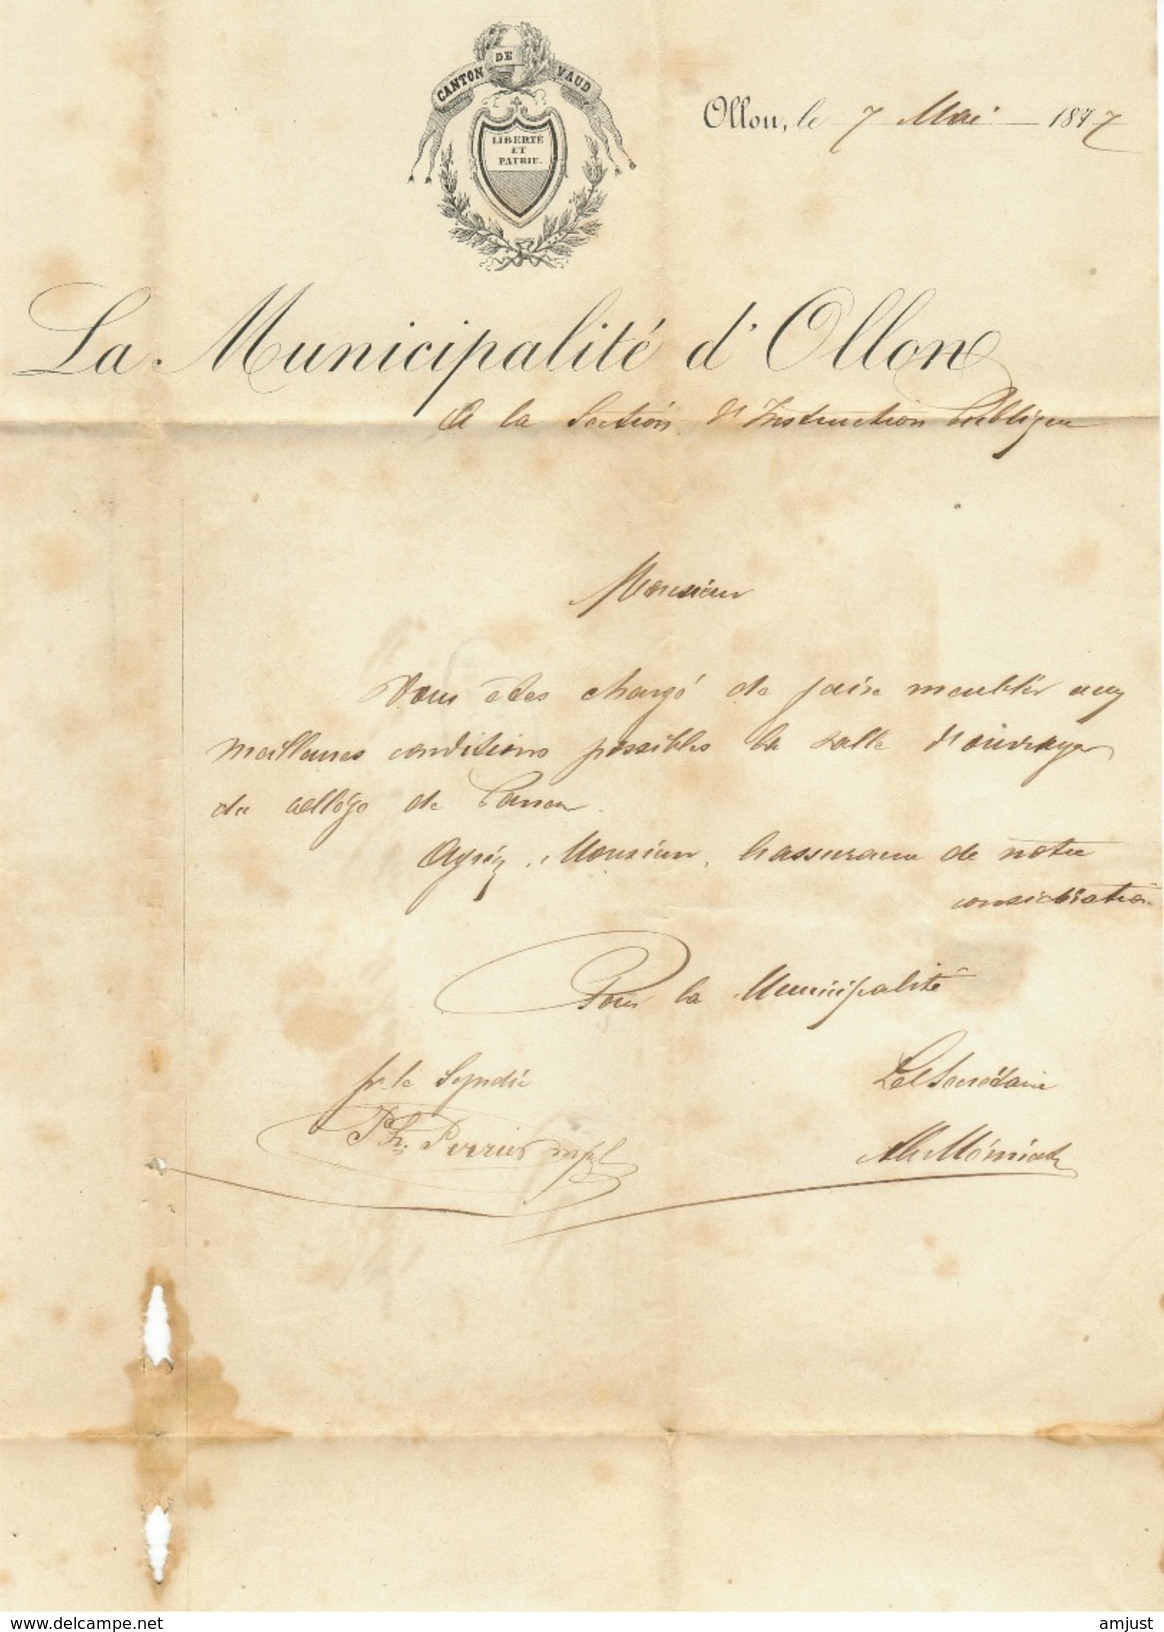 CANTON DE VAUD
LIBERTÉ
ET
PATRIE.
Ollon, le 7 Mai 1877
La Municipalité d'Ollon
A la Section d'Instruction Publique
Monsieur
Vous êtes chargé de faire meubler aux
meilleures conditions possibles la salle d'ouvrages
du collège de Panex.
Agréez, Monsieur, l'assurance de notre
considération
Pour la Municipalité
pr. le Syndic
Le Secrétaire
Ph. Perrier mpl
delcampe.net
amjust